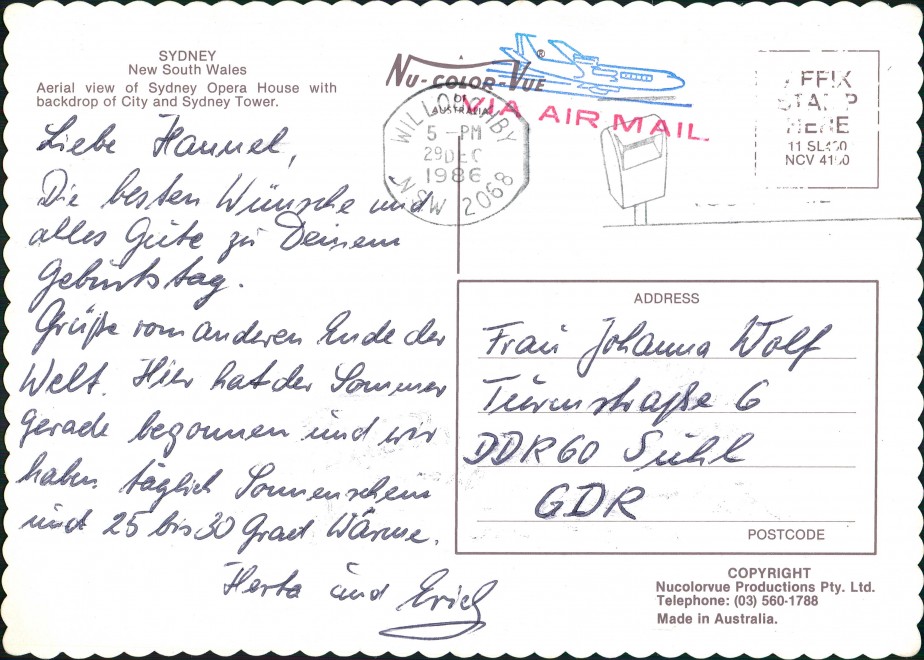 SYDNEY
New South Wales
Aerial view of Sydney Opera House with
backdrop of City and Sydney Tower.
Liebe Hannel,
Die besten Wünsche und
alles Gute zu Deinem
Geburtstag.
Grüße vom anderen Ende der
Welt. Hier hat der Sommer
gerade begonnen und wir
haben täglich Sonnenschein
und 25 bis 30 Grad Wärme.
Herta und Erich
NU-COLOR-VUE®
OF
AUSTRALIA
VIA AIR MAIL.
WILLOUGHBY
5 - PM
29 DEC
1986
NSW 2068
AFFIX
STAMP
HERE
11 SL430
NCV 4150
ADDRESS
Frau Johanna Wolf
Turmstraße 6
DDR 60 Suhl
GDR
POSTCODE
COPYRIGHT
Nucolorvue Productions Pty. Ltd.
Telephone: (03) 560-1788
Made in Australia.